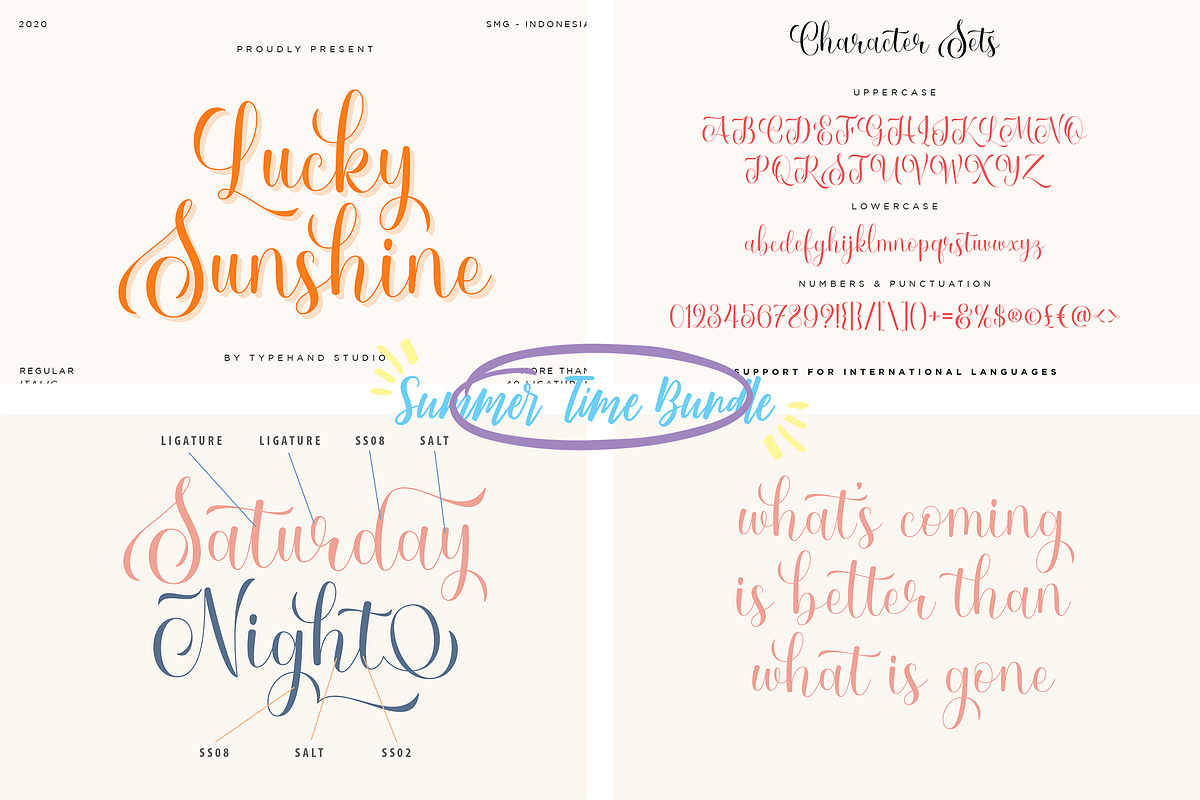 2020
SMG - INDONESIA
PROUDLY PRESENT
Lucky
Sunshine
BY TYPEHAND STUDIO
REGULAR
ITALIC
MORE THAN
40 LIGATURES
Character Sets
UPPERCASE
ABCDEFGHIJKLMNO
PQRSTUVWXYZ
LOWERCASE
abcdefghijklmnopqrstuvwxyz
NUMBERS & PUNCTUATION
0123456789?!{|}/[\]()+=&%$®©£€@<>
SUPPORT FOR INTERNATIONAL LANGUAGES
Summer Time Bundle
LIGATURE LIGATURE SS08 SALT
Saturday
Night
SS08 SALT SS02
what's coming
is better than
what is gone